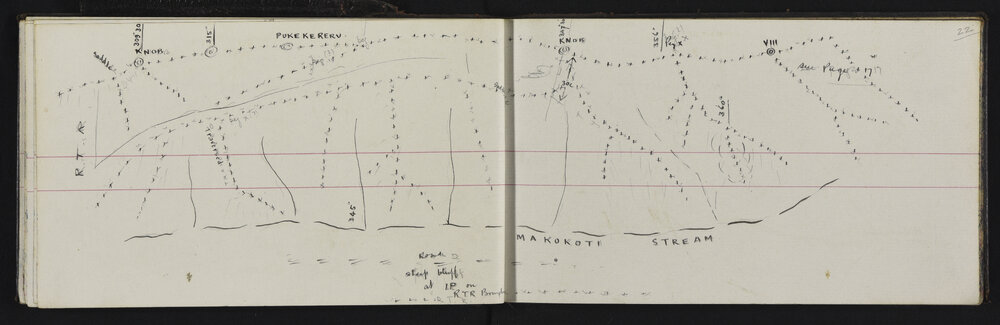 22
309°30'
KNOB
315°
PUKEKERERU
KNOB
356°
VIII
see Page 17
saddle
R.T.R.
360°
345°
MAKOKOTI STREAM
Road
steep bluff
at I.P. on
RTR Boundy